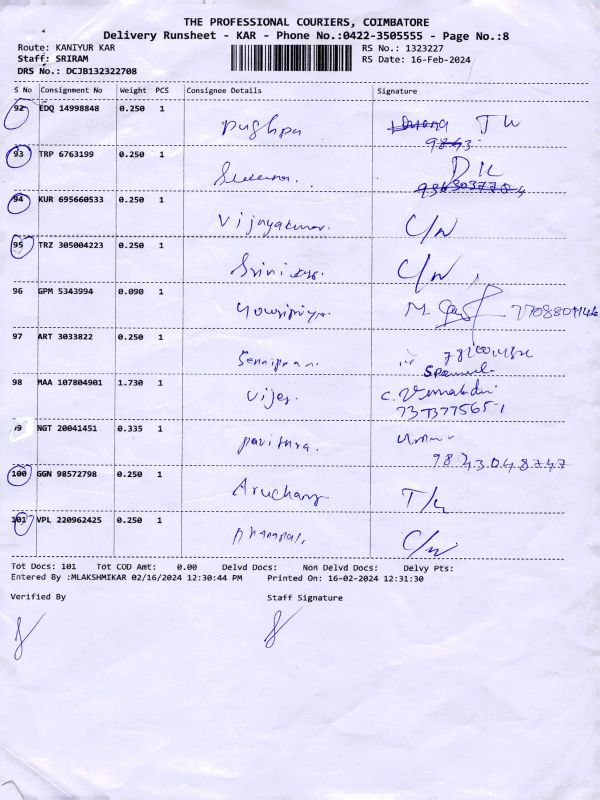 THE PROFESSIONAL COURIERS, COIMBATORE
Delivery Runsheet - KAR - Phone No.:0422-3505555 - Page No.:8
Route: KANIYUR KAR RS No.: 1323227
Staff: SRIRAM RS Date: 16-Feb-2024
DRS No.: DCJB132322708
S No Consignment No Weight PCS Consignee Details Signature
92 EDQ 14998848 0.250 1 pushpa
93 TRP 6763199 0.250 1
94 KUR 695660533 0.250 1 Vijayakumar. C/N
95 TRZ 305004223 0.250 1 C/N
96 GPM 5343994 0.090 1
97 ART 3033822 0.250 1
98 MAA 107804901 1.730 1 Vijay.
NGT 20041451 0.335 1 pavithra.
9843048747
100 GGN 98572798 0.250 1
101 VPL 220962425 0.250 1 C/N
Tot Docs: 101 Tot COD Amt: 0.00 Delvd Docs: Non Delvd Docs: Delvy Pts:
Entered By :MLAKSHMIKAR 02/16/2024 12:30:44 PM Printed On: 16-02-2024 12:31:30
Verified By Staff Signature